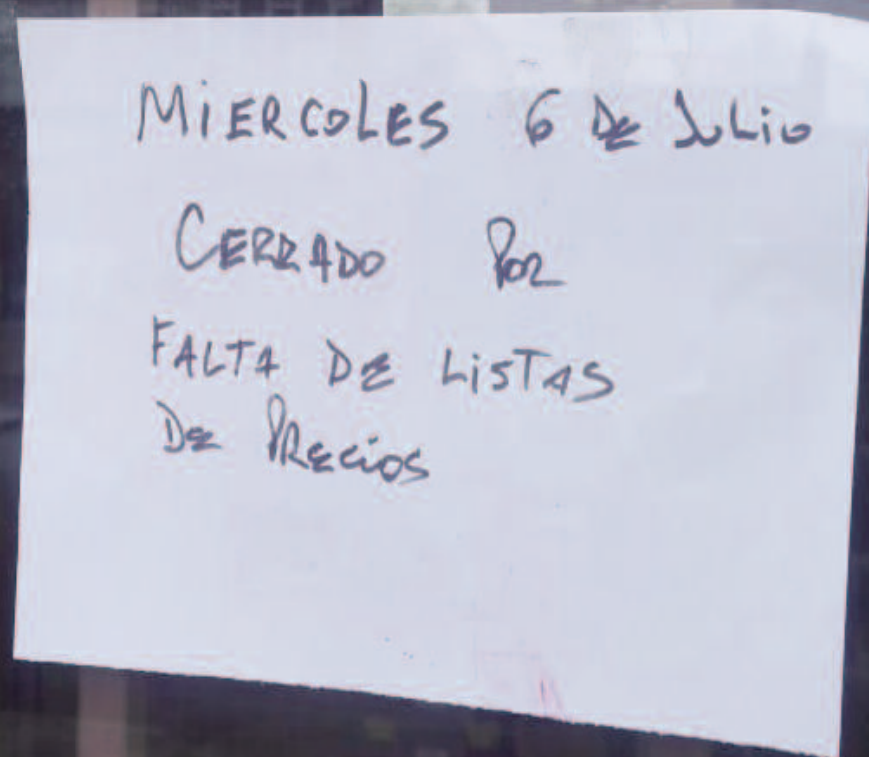 MiERCOLES 6 DE JULiO
CERRADO POR
FALTA DE LiSTAS
DE PRECiOS